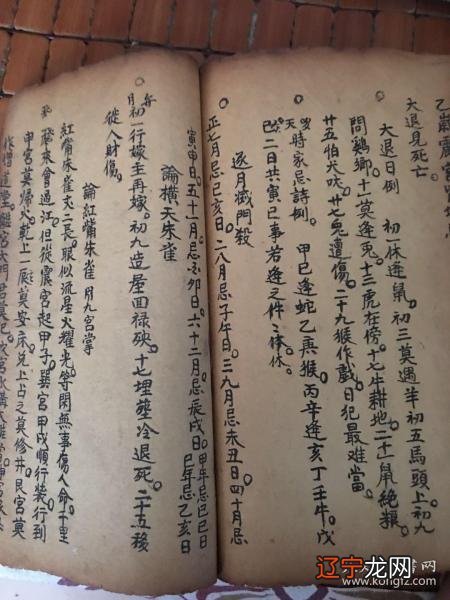 乙
大退見死亡。
大退日例 初一休逢鼠。初三莫遇羊初五馬頭上。初九
問鷄鄉。十一莫逢兎。十三虎在傍。十七牛耕地。二十一鼠絶粮。
廿五怕犬吠。廿七兎遭傷。二十九猴作戲。日犯最难當。
天時家忌詩例。 甲巳逢蛇乙庚猴。丙辛逢亥丁壬牛。戊
二日共寅巳事若逢之件〻休休。
逐月殺門殺
正七月忌巳亥日。二八月忌子午日。三九月忌未丑日四十月忌
寅申日。五十一月。忌 卯日。六十二月忌辰戌日。甲年忌巳巳日
巳年忌乙亥日
論橫天朱雀
每月初一行嫁主再嫁。初九造屋回禄殃。十七埋葬冷退死。二十五移
徙人財傷。
論紅嘴朱雀 附九宮掌
紅嘴朱雀丈二長。眼似流星火耀光。等閑無事傷人命。千里
飛來會過江。但從震宮起甲子。巽宮甲戌順行裝。行到
申宮莫歸火。乾上一遊莫安床。兑上占之莫修井。艮宮莫
辽宁龙网
www.kongfz.com